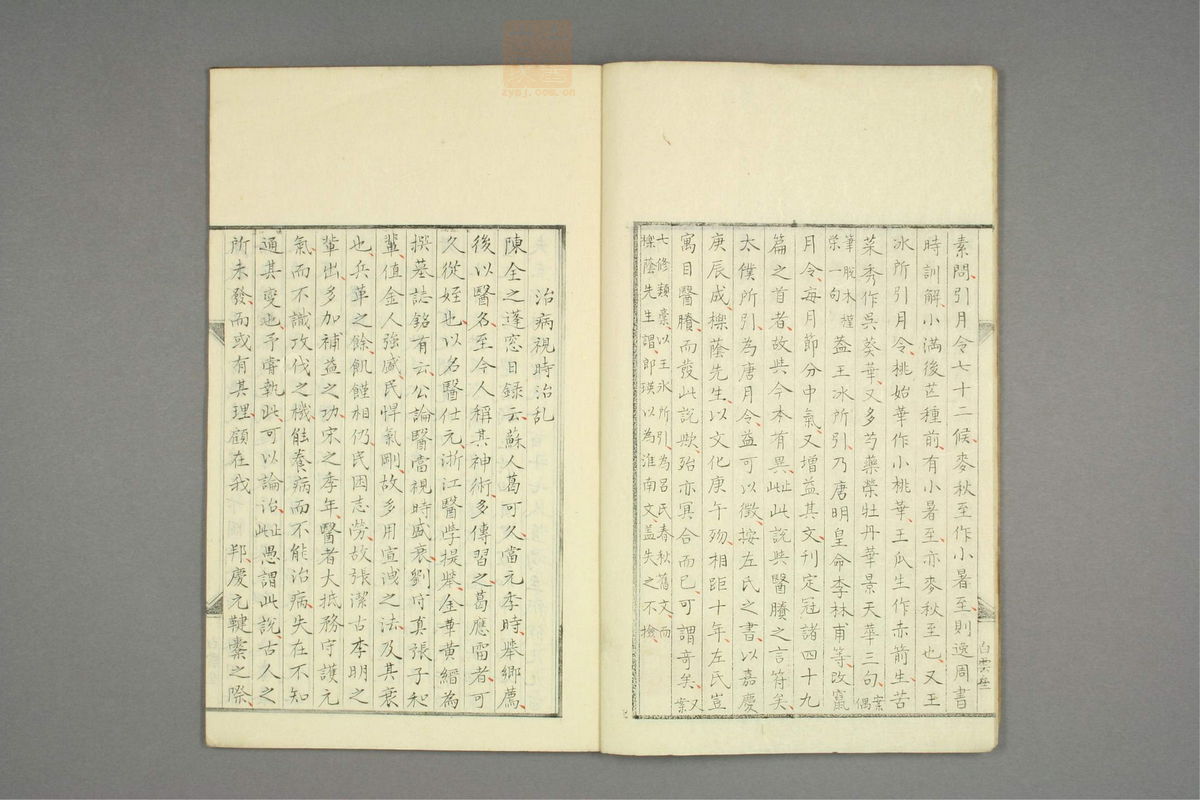 素問引月令七十二候麥秋至作小暑至則逸周書
時訓解小滿後芒種前有小暑至亦麥秋至也又王
冰所引月令桃始華作小桃華王瓜生作赤箭生苦
菜秀作吳葵華又多芍藥榮牡丹華景天華三句案偶
筆脫木槿榮一句蓋王冰所引乃唐明皇命李林甫等改竄
月令每月節分中氣又增益其文刊定冠諸四十九
篇之首者故與今本有異此說與醫賸之言符矣
太僕所引為唐月令益可以徵按左氏之書以嘉慶
庚辰成櫟蔭先生以文化庚午歿相距十年左氏豈
寓目醫賸而發此說歟殆亦冥合而已可謂奇矣又案
七修類稾以王冰所引為呂氏春秋舊文而
櫟蔭先生謂郎瑛以為淮南文蓋失之不撿
白雲
治病視時治乱
陳全之蓬窓日録云蘇人葛可久當元季時與鄉薦
後以醫名至今人稱其神術多傳習之葛應雷者可
久從姪也以名醫仕元浙江醫學提舉金華黃縉為
撰墓誌銘有云公論醫當視時盛衰劉守真張子和
輩值金人强盛民悍氣剛故多用宣洩之法及其衰
也兵革之餘飢饉相仍民困志勞故張潔古李明之
輩出多加補益之功宋之季年醫者大抵務守護元
氣而不識攻伐之機能養病而不能治病失在不知
通其變也予嘗執此可以論治愚謂此說古人之
所未發而或有其理顧在我邦慶元鞬櫜之際
zyyj.com.cn